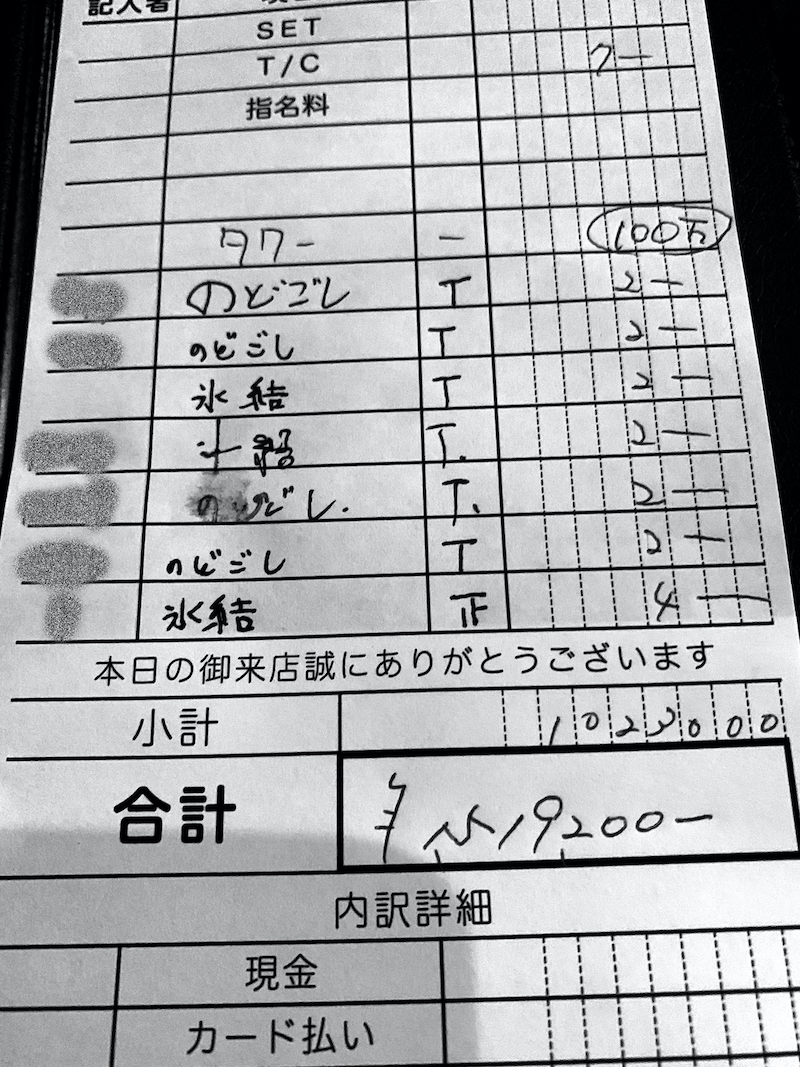 記入者
SET
T/C 7ー
指名料
タワー ー 100万
のどごし T 2ー
のどごし T 2ー
氷結 T 2ー
氷結 T. 2ー
のどごし. T. 2ー
のどごし T 2ー
氷結 正 4ー
本日の御来店誠にありがとうございます
小計 1023000
合計
内訳詳細
現金
カード払い